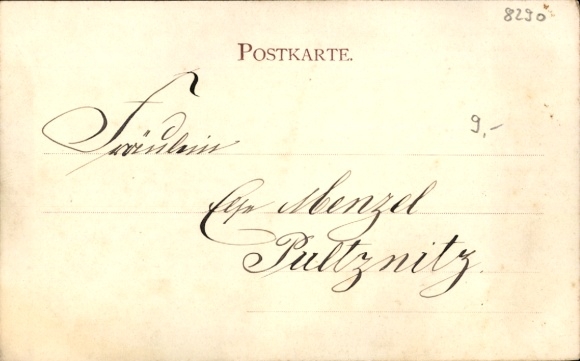 8290
POSTKARTE.
9,-
Fräulein
Else Menzel
Pultznitz.